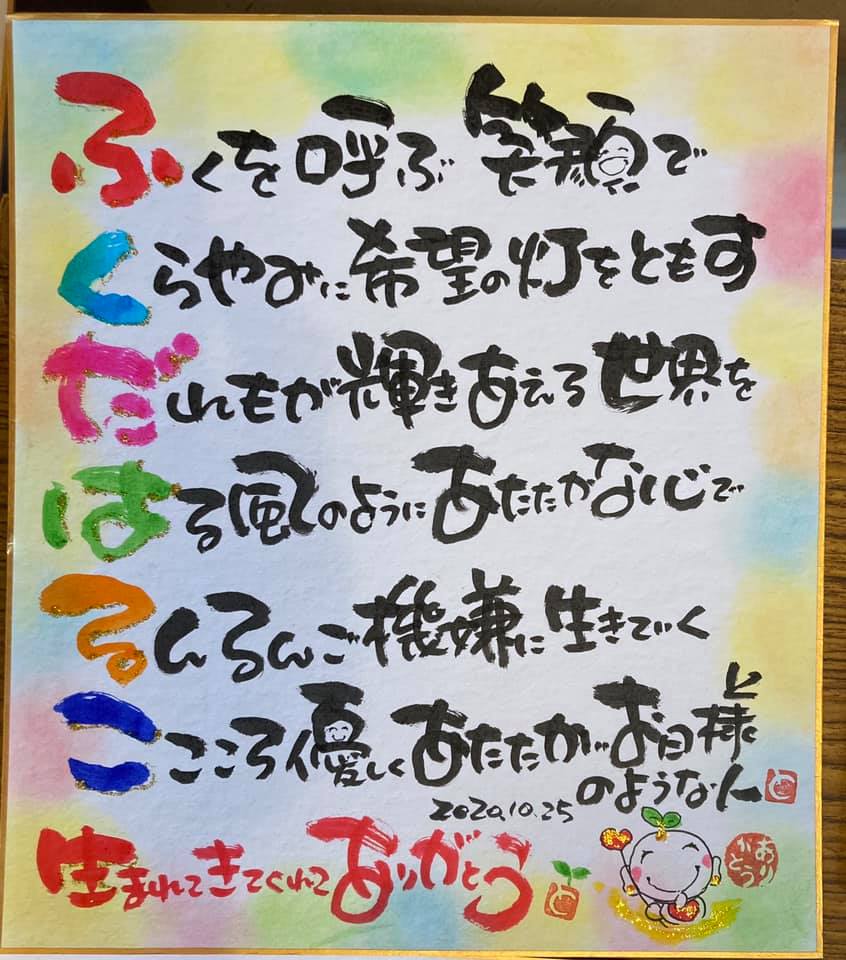 ふくを呼ぶ 笑顔で
くらやみに希望の灯をともす
だれもが輝きあえる世界を
はる風のようにあたたかな心で
るんるんご機嫌に生きていく
こころ優しくあたたかいお日様
のような人
2020.10.25
生まれてきてくれてありがとう
ありがとう